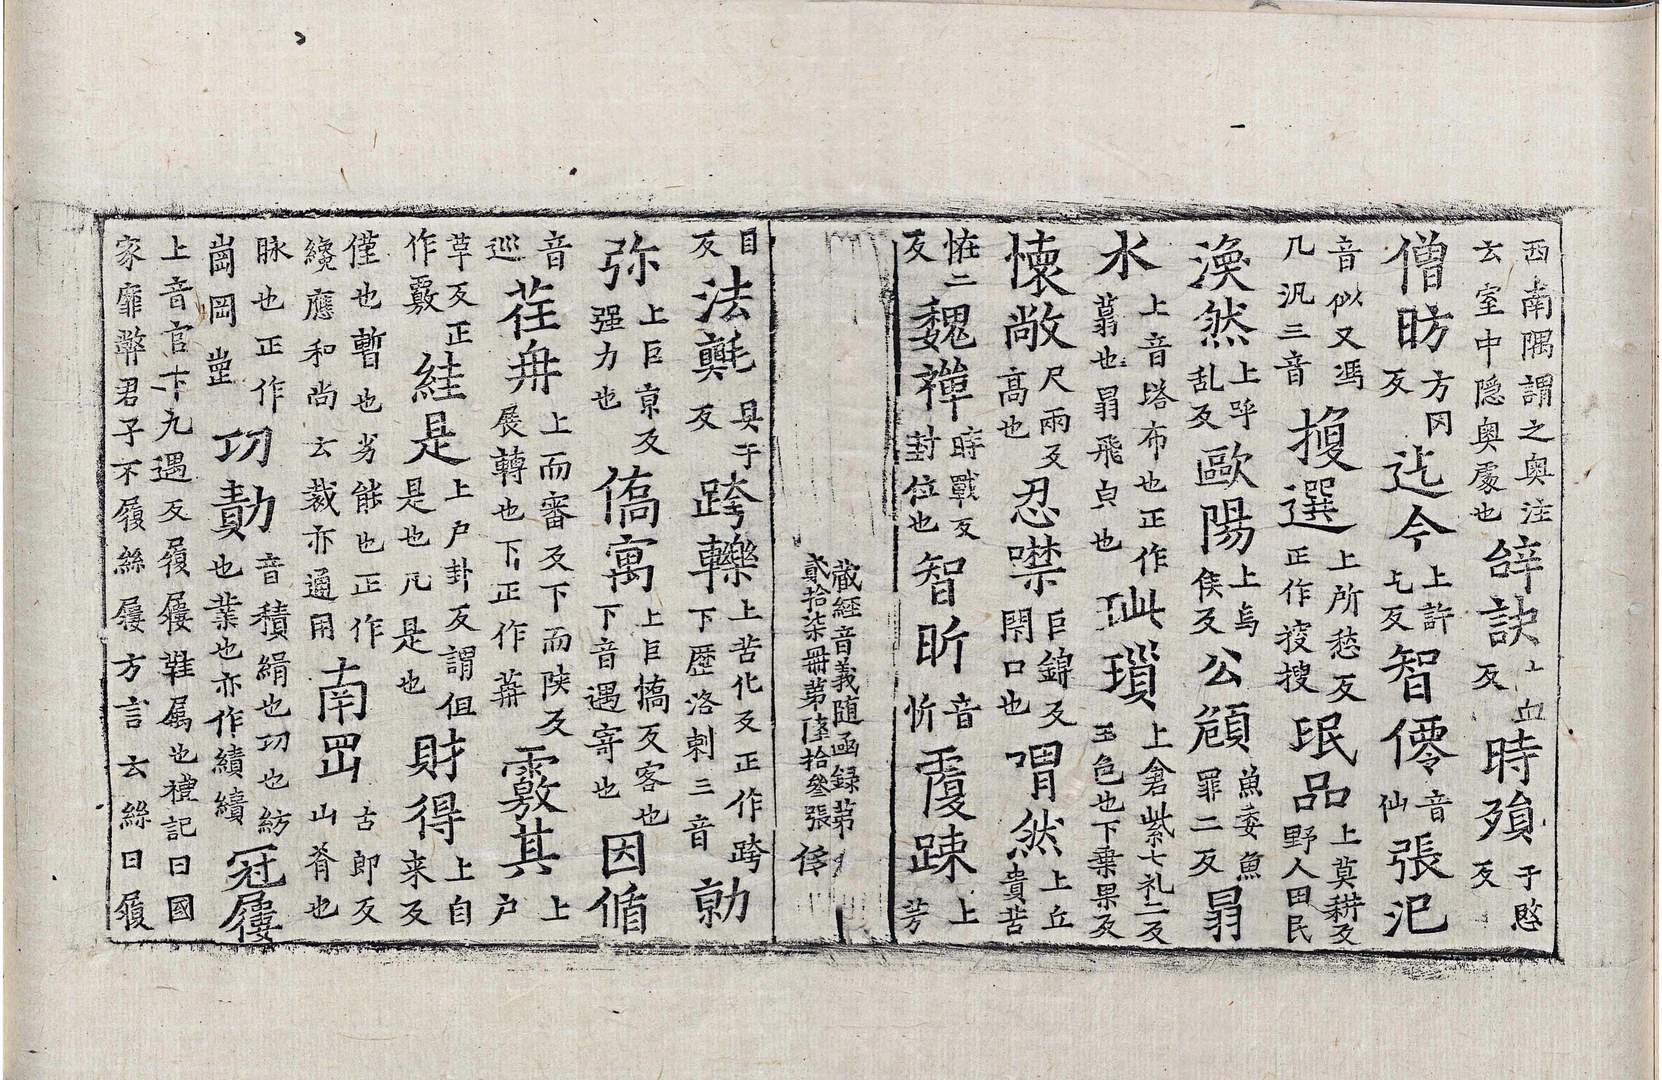 西南隅謂之奧注云室中隱奧處也 辝訣 上血反 時殞 于愍反
僧昉 方冈反 迄今 上許乞反 智儛 音仙 張汜
音似又馮几汎三音 搜選 上所愁反正作捘搜 珉品 上莫耕反野人田民
渙然 上呼乱反 歐陽 上烏侯反 公頠 魚委魚罪二反 㬱
水 上音塔布也正作㬱也㬱飛皃也 玼瑣 上倉紫七礼二反玉色也下桒果反
懷敞 尺兩反高也 忍噤 巨錦反閇口也 喟然 上丘貴苦
恠二反 魏禪 時戰反封位也 智昕 音忻 覆疎 上芳
藏經音義随函録第貳拾柒冊第陸拾叄張 侈
目反 法㲲 具于反 跨轢 上苦化反正作跨下歷洛剌三音 勍
弥 上巨京反强力也 僑寓 上巨憍反客也下音遇寄也 因循
音巡 荏苒 上而審反下而陕反展轉也下正作苒 覈其 上户
草反正作覈 絓是 上户卦反謂但是也凡是也 財得 上自来反
僅也暫也劣能也正作纔應和尚云裁亦通用 南岊 古郎反山脊也
脉也正作崗岡崗 功勣 音積緝也功也紡也業也亦作績績 冠屨
上音官下九遇反履屨鞋属也禮記曰國家靡弊君子不履絲屨方言云絲曰履